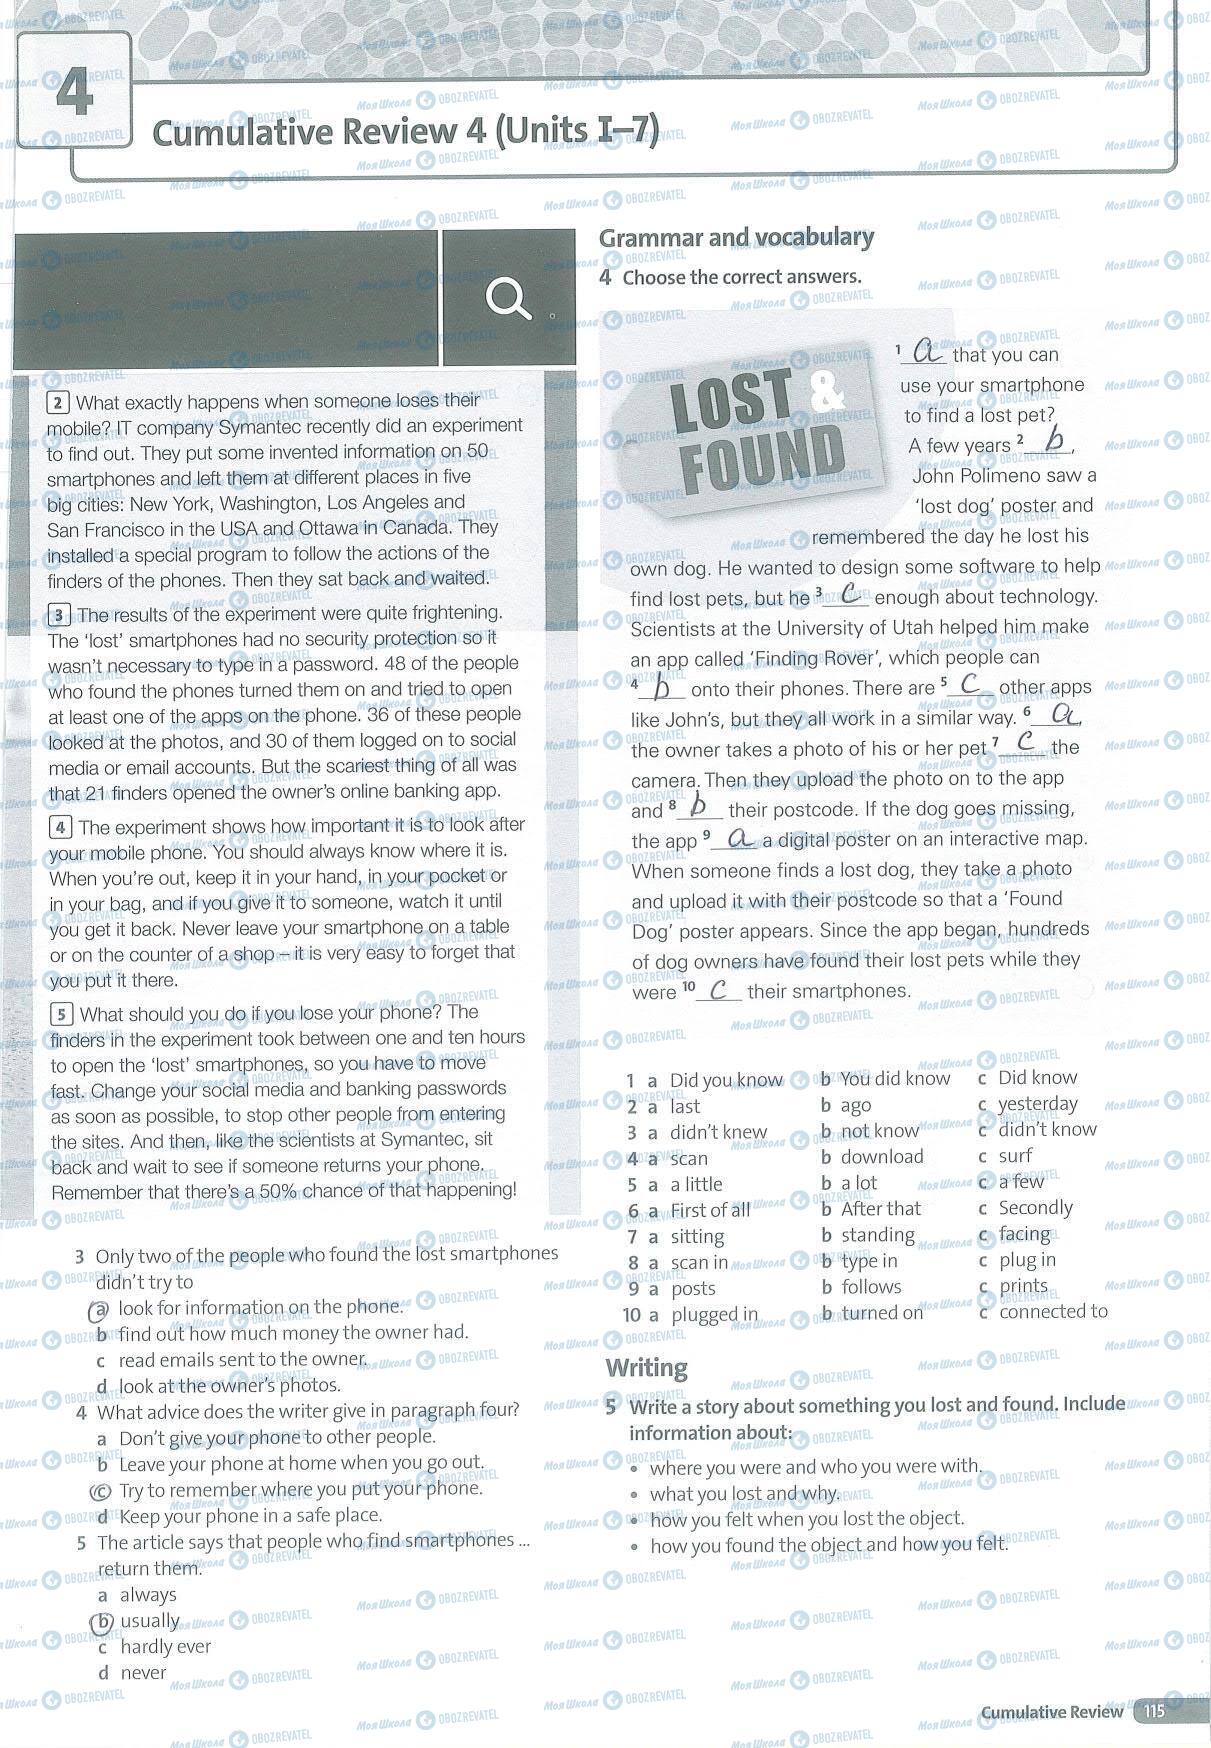 4
Cumulative Review 4 (Units I–7)
2 What exactly happens when someone loses their
mobile? IT company Symantec recently did an experiment
to find out. They put some invented information on 50
smartphones and left them at different places in five
big cities: New York, Washington, Los Angeles and
San Francisco in the USA and Ottawa in Canada. They
installed a special program to follow the actions of the
finders of the phones. Then they sat back and waited.
3 The results of the experiment were quite frightening.
The ‘lost’ smartphones had no security protection so it
wasn’t necessary to type in a password. 48 of the people
who found the phones turned them on and tried to open
at least one of the apps on the phone. 36 of these people
looked at the photos, and 30 of them logged on to social
media or email accounts. But the scariest thing of all was
that 21 finders opened the owner’s online banking app.
4 The experiment shows how important it is to look after
your mobile phone. You should always know where it is.
When you’re out, keep it in your hand, in your pocket or
in your bag, and if you give it to someone, watch it until
you get it back. Never leave your smartphone on a table
or on the counter of a shop – it is very easy to forget that
you put it there.
5 What should you do if you lose your phone? The
finders in the experiment took between one and ten hours
to open the ‘lost’ smartphones, so you have to move
fast. Change your social media and banking passwords
as soon as possible, to stop other people from entering
the sites. And then, like the scientists at Symantec, sit
back and wait to see if someone returns your phone.
Remember that there’s a 50% chance of that happening!
3 Only two of the people who found the lost smartphones
didn’t try to
a look for information on the phone.
b find out how much money the owner had.
c read emails sent to the owner.
d look at the owner’s photos.
4 What advice does the writer give in paragraph four?
a Don’t give your phone to other people.
b Leave your phone at home when you go out.
c Try to remember where you put your phone.
d Keep your phone in a safe place.
5 The article says that people who find smartphones ...
return them.
a always
b usually
c hardly ever
d never
Grammar and vocabulary
4 Choose the correct answers.
LOST &
FOUND
1 a that you can
use your smartphone
to find a lost pet?
A few years 2 b,
John Polimeno saw a
‘lost dog’ poster and
remembered the day he lost his
own dog. He wanted to design some software to help
find lost pets, but he 3 c enough about technology.
Scientists at the University of Utah helped him make
an app called ‘Finding Rover’, which people can
4 b onto their phones. There are 5 c other apps
like John’s, but they all work in a similar way. 6 a,
the owner takes a photo of his or her pet 7 c the
camera. Then they upload the photo on to the app
and 8 b their postcode. If the dog goes missing,
the app 9 a a digital poster on an interactive map.
When someone finds a lost dog, they take a photo
and upload it with their postcode so that a ‘Found
Dog’ poster appears. Since the app began, hundreds
of dog owners have found their lost pets while they
were 10 c their smartphones.
1 a Did you know b You did know c Did know
2 a last b ago c yesterday
3 a didn’t knew b not know c didn’t know
4 a scan b download c surf
5 a a little b a lot c a few
6 a First of all b After that c Secondly
7 a sitting b standing c facing
8 a scan in b type in c plug in
9 a posts b follows c prints
10 a plugged in b turned on c connected to
Writing
5 Write a story about something you lost and found. Include
information about:
• where you were and who you were with.
• what you lost and why.
• how you felt when you lost the object.
• how you found the object and how you felt.
Cumulative Review 115
Моя Школа OBOZREVATEL